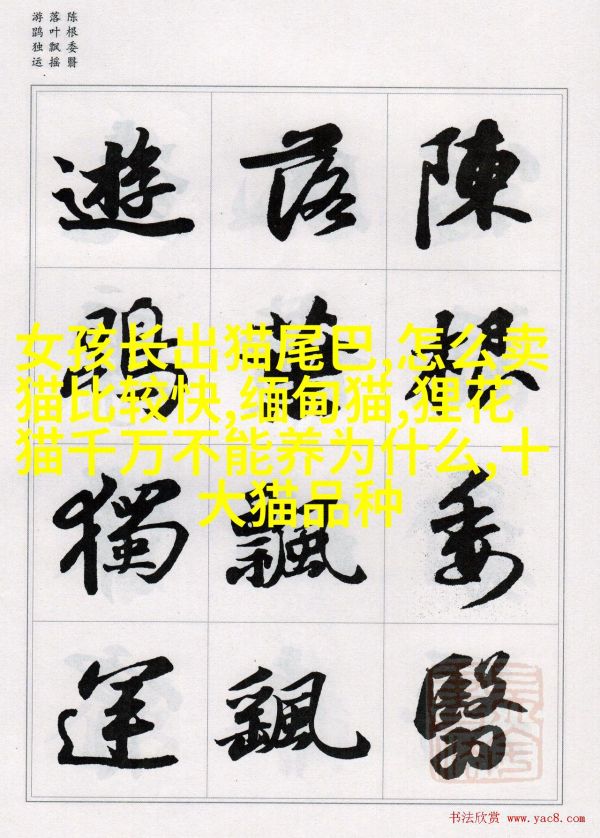 陈根委翳
落叶飘摇
游鹍独运
陳根委翳
落葉飄颻
遊鵾獨運
女孩长出猫尾巴,怎么卖
猫比较快,缅甸猫,狸花
猫千万不能养为什么,十
大猫品种
书法欣赏 www.yac8.com